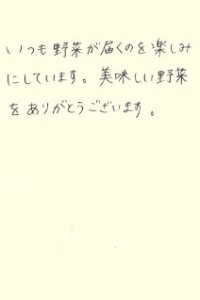 いつも野菜が届くのを楽しみ
にしています。美味しい野菜
をありがとうございます。